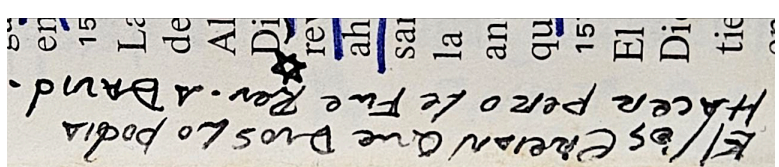 en
15
La
de
Al
Di
rev
ah
sar
la
an
qu
15
El
Di
tie
El/os Creian Que Dios Lo podia
HACER pero Le Fue Rev. a DAVID.